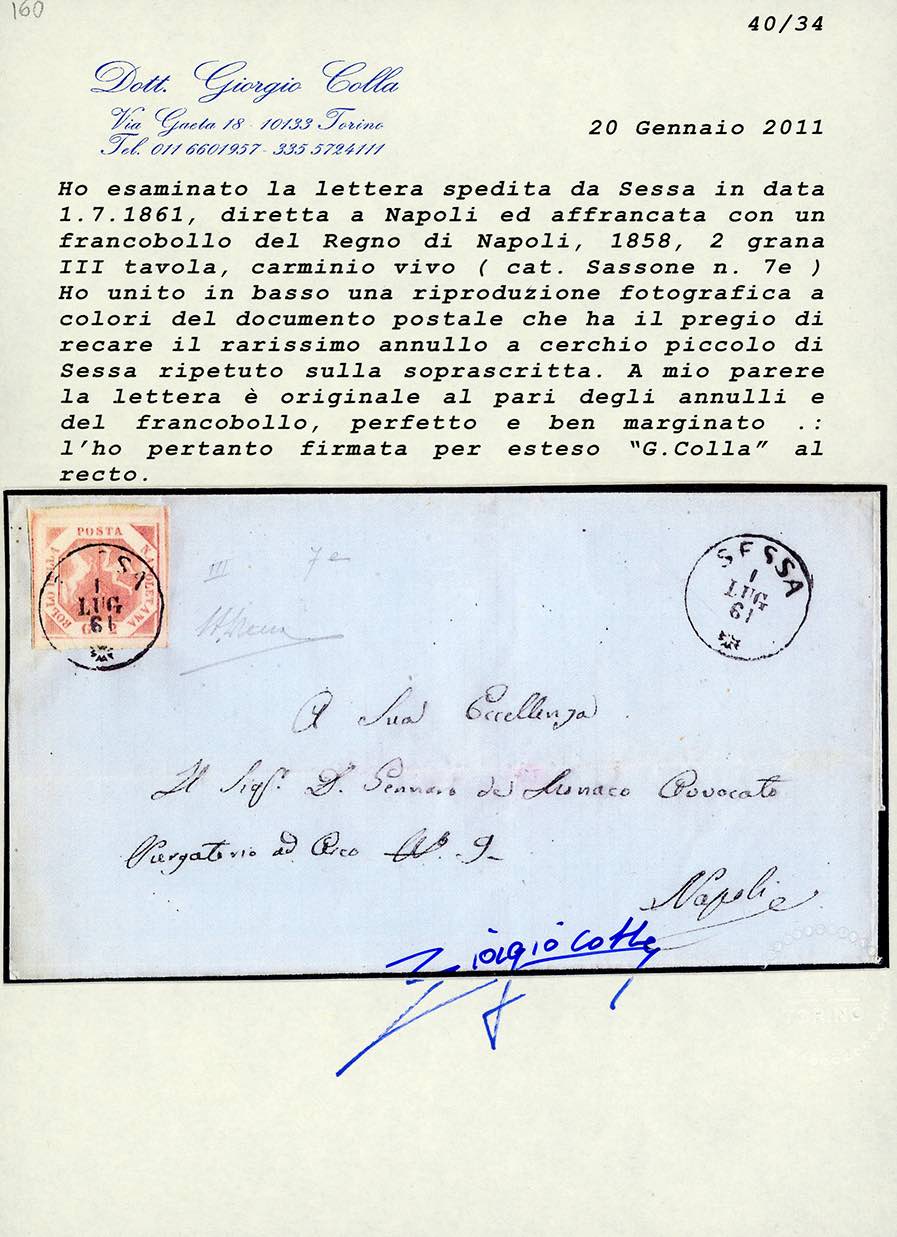 160
40/34
Dott. Giorgio Colla
Via Gaeta 18 - 10133 Torino
Tel. 011 6601957 - 335 5724111
20 Gennaio 2011
Ho esaminato la lettera spedita da Sessa in data
1.7.1861, diretta a Napoli ed affrancata con un
francobollo del Regno di Napoli, 1858, 2 grana
III tavola, carminio vivo ( cat. Sassone n. 7e )
Ho unito in basso una riproduzione fotografica a
colori del documento postale che ha il pregio di
recare il rarissimo annullo a cerchio piccolo di
Sessa ripetuto sulla soprascritta. A mio parere
la lettera è originale al pari degli annulli e
del francobollo, perfetto e ben marginato .:
l'ho pertanto firmata per esteso “G.Colla” al
recto.
POSTA
NAPOLETANA
BOLLO DELLA
SA
1
LUG
61
III 7e
SESSA
1
LUG
61
A Sua Eccellenza
Il Sigr. D. Gennaro de Monaco Avvocato
Purgatorio ad Arco N.º 9
Napoli
Giorgio Colla